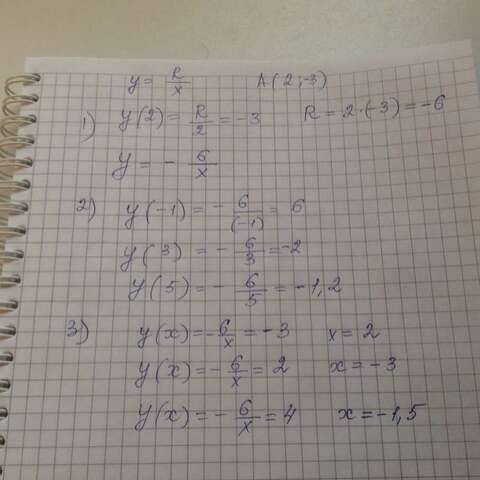 y = R/x A(2; -3)
1) y(2) = R/2 = -3 R = 2·(-3) = -6
y = - 6/x
2) y(-1) = - 6/(-1) = 6
y(3) = - 6/3 = -2
y(5) = - 6/5 = -1,2
3) y(x) = - 6/x = -3 x = 2
y(x) = - 6/x = 2 x = -3
y(x) = - 6/x = 4 x = -1,5